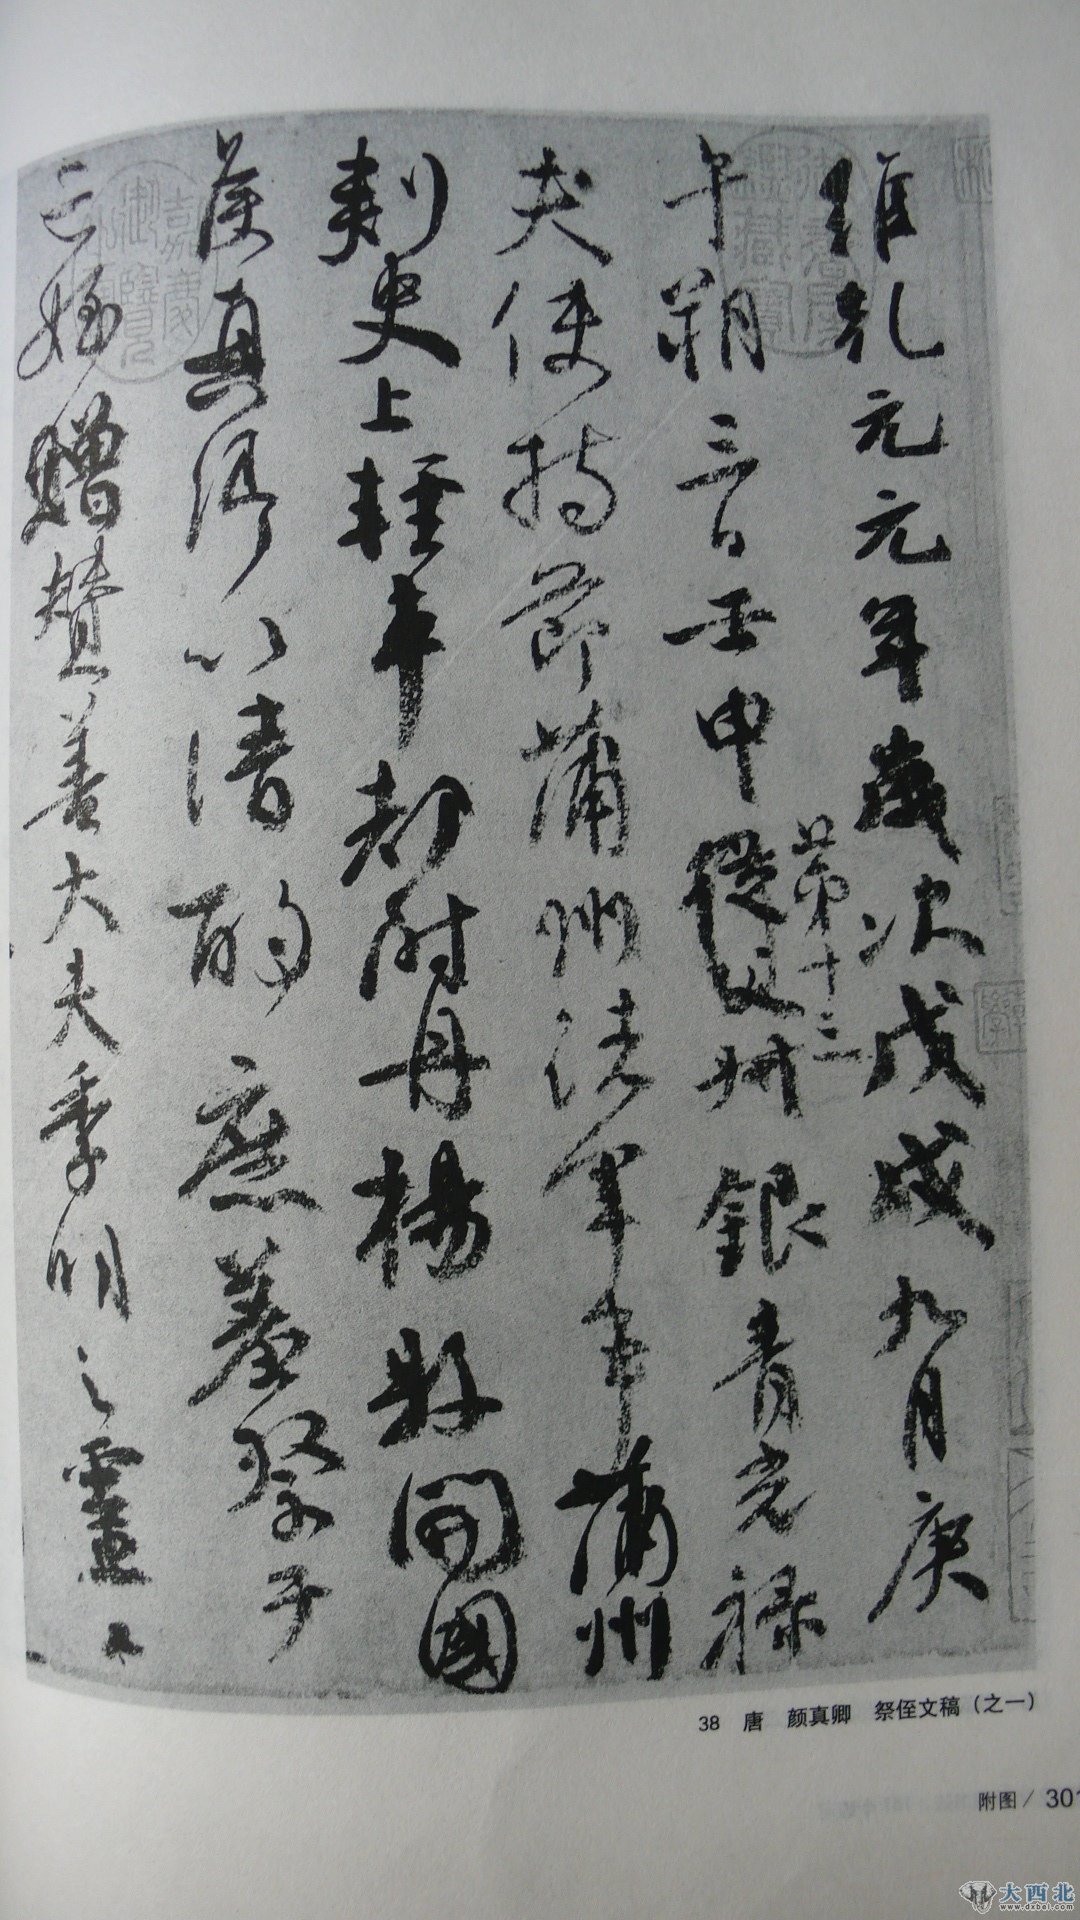 維乾元元年歲次戊戌九月庚
午朔三日壬申第十三從父叔銀青光祿
夫使持節蒲州諸軍事蒲州
刺史上輕車都尉丹楊縣開國
侯真卿以清酌庶羞祭于
亡姪贈贊善大夫季明之靈曰
御書房鑒藏寶
嘉慶御覽之寶
38 唐 颜真卿 祭侄文稿（之一）
附图／301
大西北
www.dxbei.com